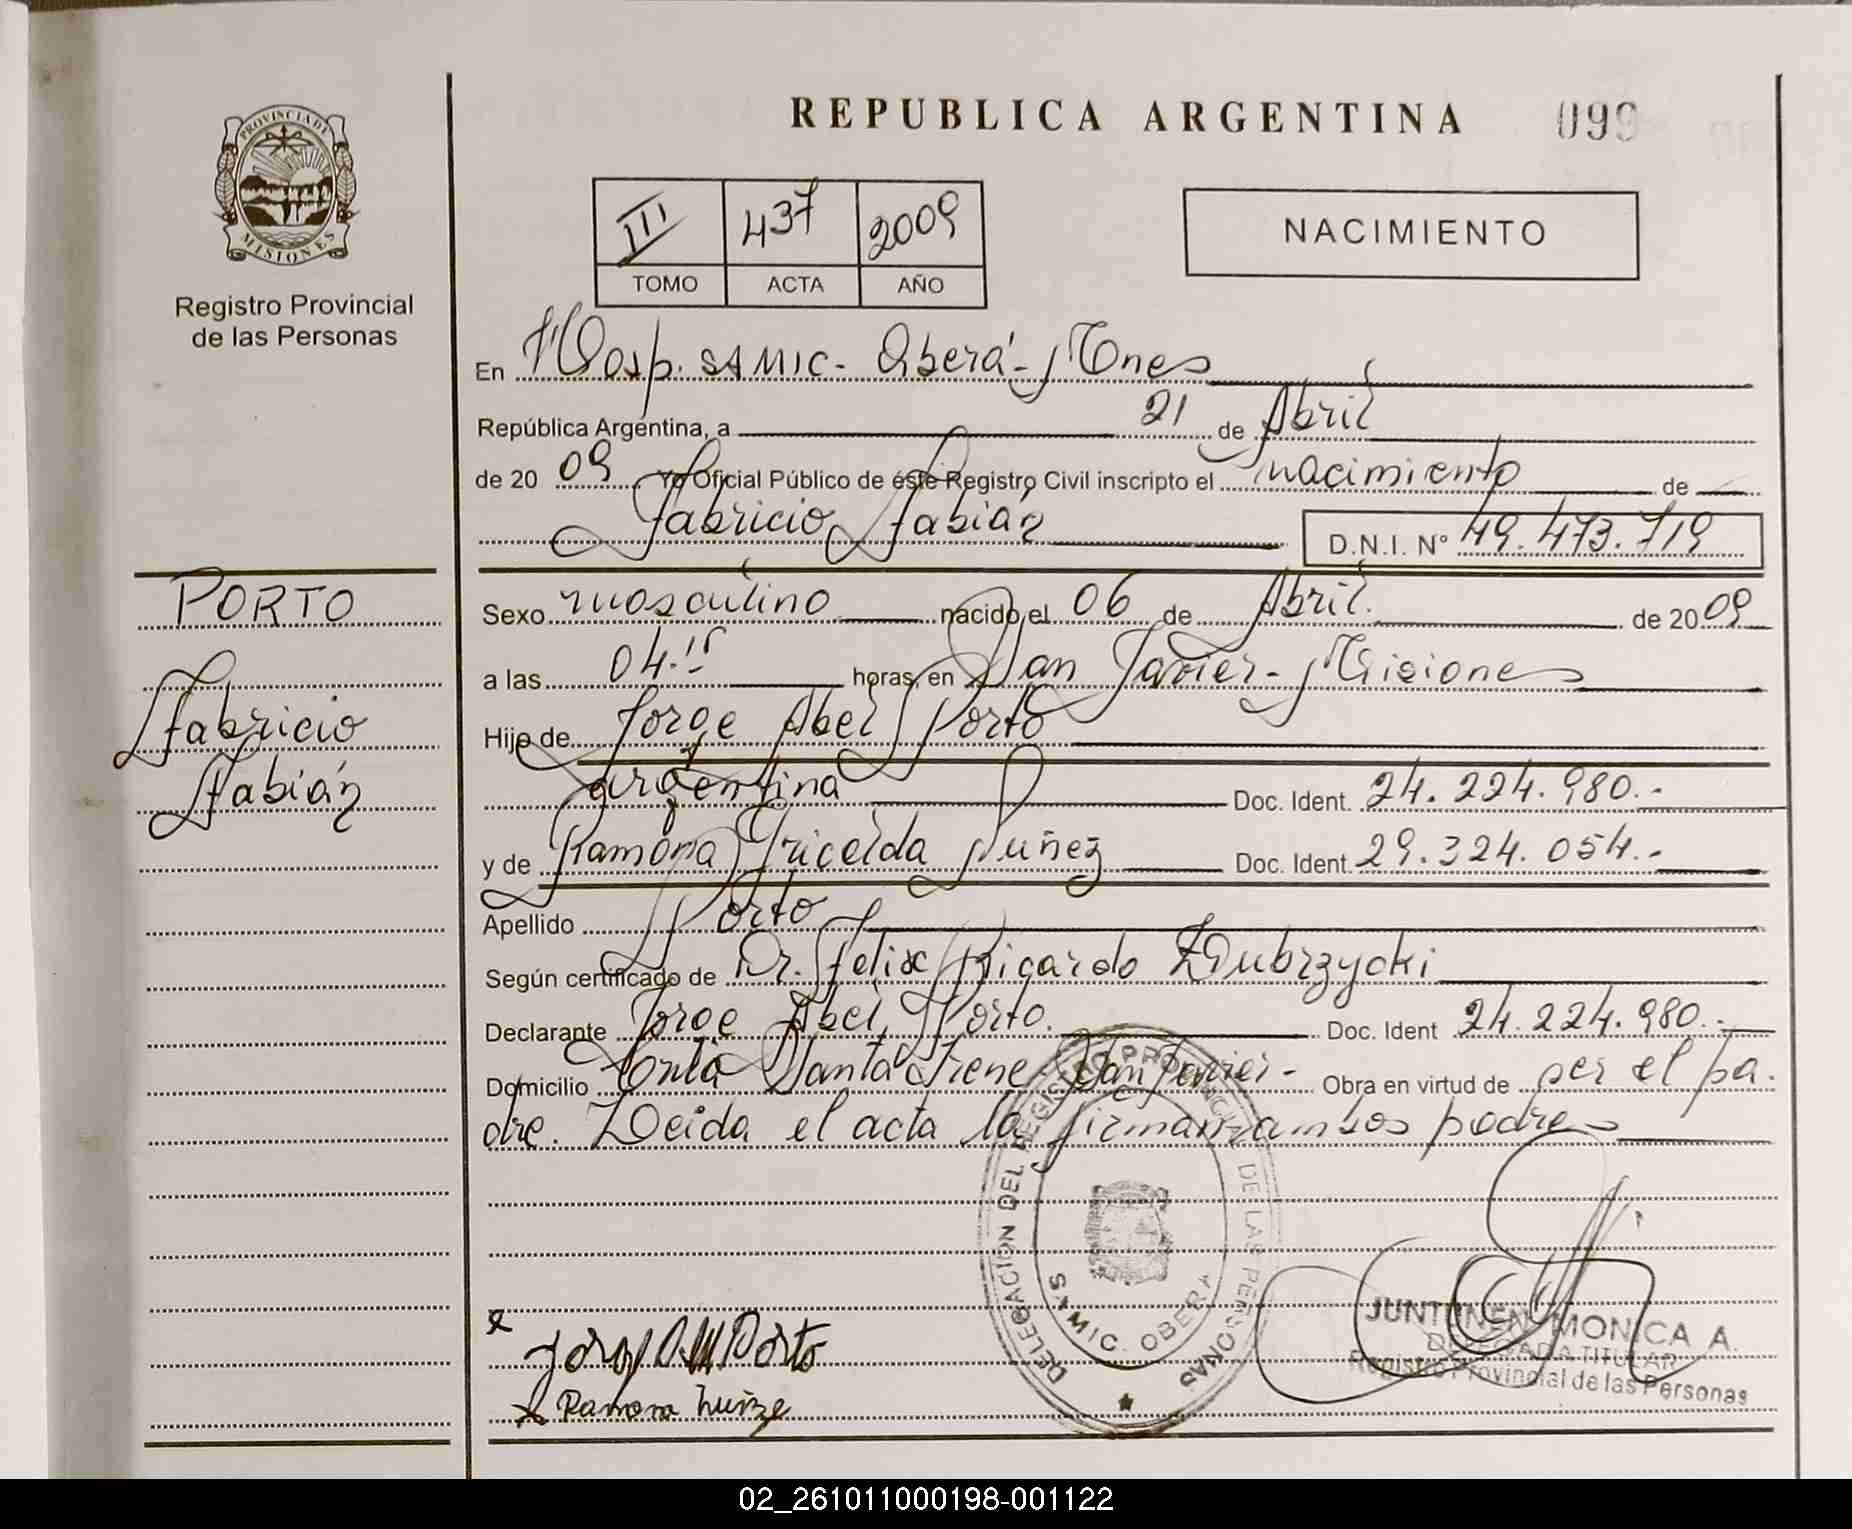 REPUBLICA ARGENTINA 099
PROVINCIA DE
MISIONES
Registro Provincial
de las Personas
III 437 2009
TOMO ACTA AÑO
NACIMIENTO
En Hosp. SAMIC - Oberá - Mnes
República Argentina, a 21 de Abril
de 20 09 Yo Oficial Público de éste Registro Civil inscripto el nacimiento de
Fabricio Fabián D.N.I. N° 49.473.719
PORTO
Fabricio
Fabián
Sexo masculino nacido el 06 de Abril. de 20 09
a las 04.15 horas, en San Javier - Misiones
Hijo de Jorge Abel Porto
argentina Doc. Ident. 24.224.980.-
y de Ramona Gricelda Nuñez Doc. Ident. 29.324.054.-
Apellido Porto
Según certificado de Dr. Felix Ricardo Dubrzycki
Declarante Jorge Abel Porto. Doc. Ident 24.224.980.-
Domicilio Cnia Santa Irene - San Javier - Obra en virtud de ser el pa.
dre. Leida el acta la firman ambos padres
DELEGACIÓN DEL REGISTRO PROVINCIAL DE LAS PERSONAS
S.A.MIC. OBERA
Porto
Ramona
JUNTUNEN MONICA A.
DELEGADA TITULAR
Registro Provincial de las Personas
02_261011000198-001122